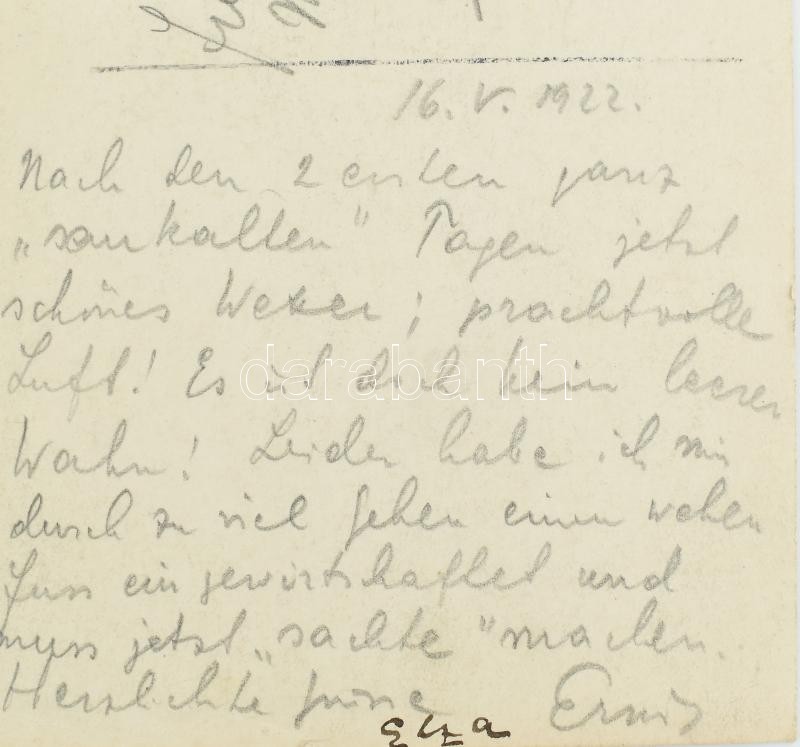 16. V. 1922.
Nach den 2 ersten ganz
„saukalten" Tagen jetzt
schönes Wetter; prachtvolle
Luft! Es ist doch kein leerer
Wahn! Leider habe ich mir
durch zu viel Gehen einen wehen
Fuss eingewirtschaftet und
muss jetzt „sachte" machen.
Herzlichste Grüsse
Elza
darabanth